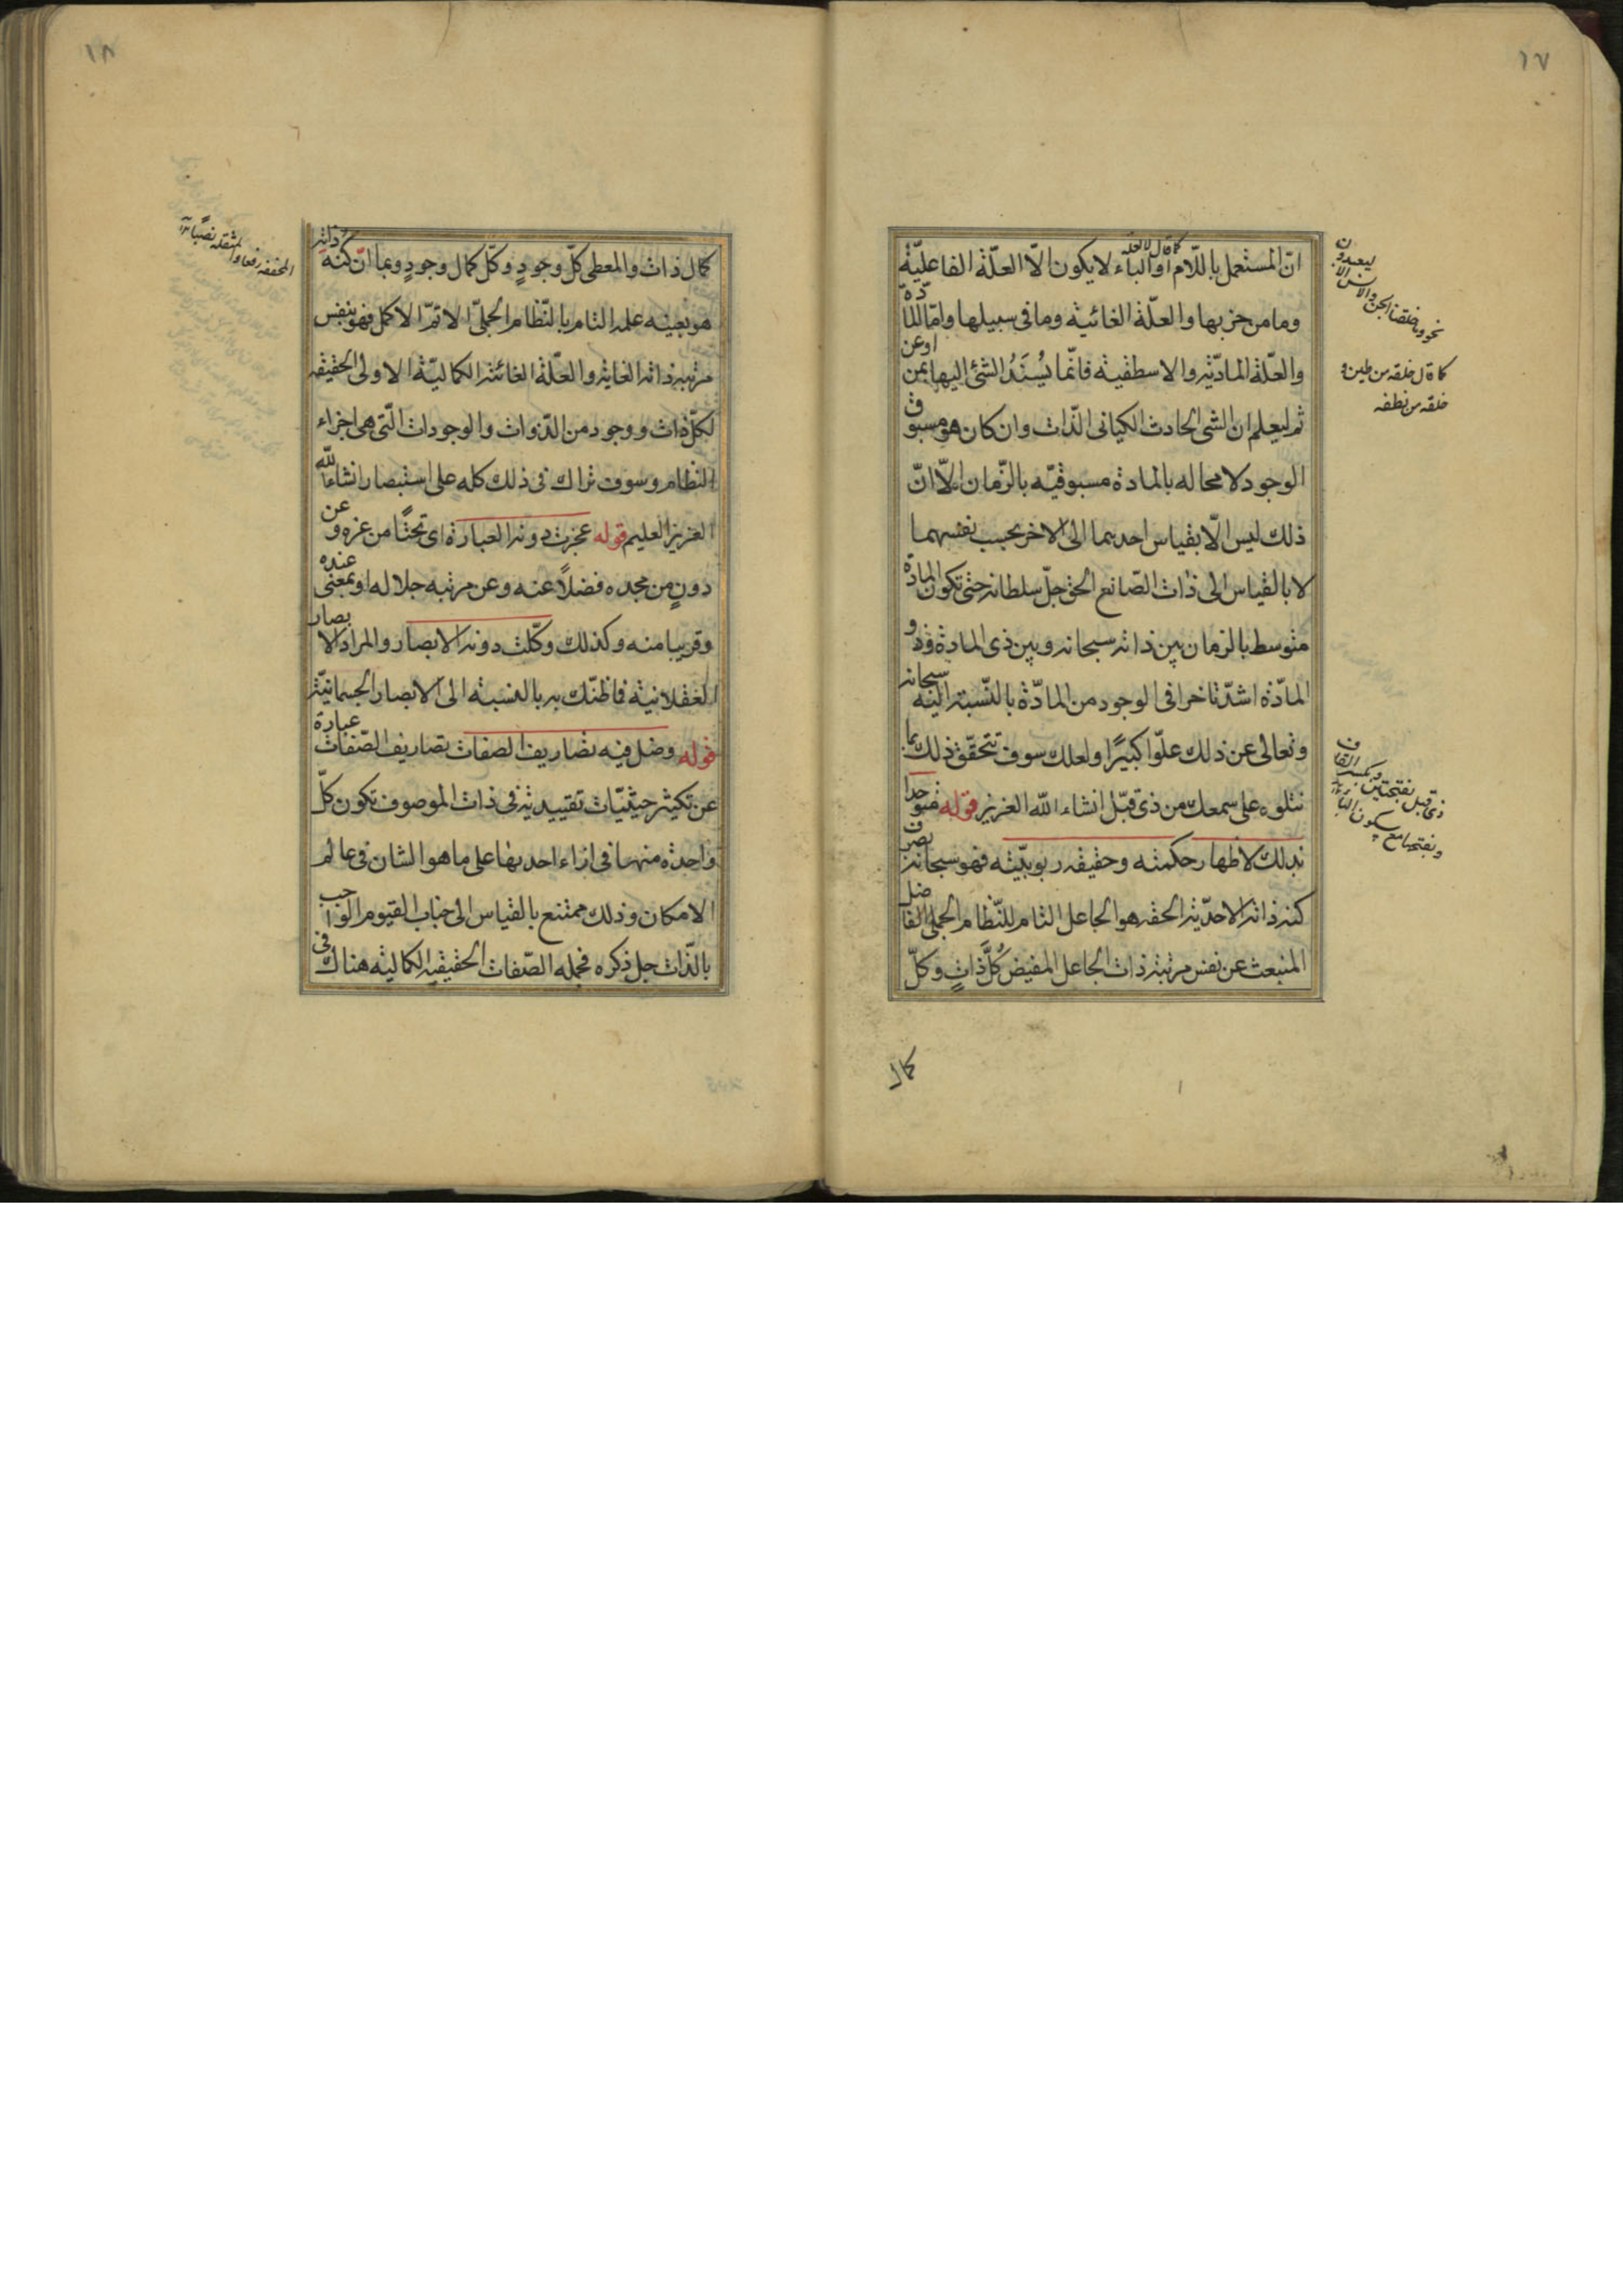 ١٧
انّ المستعمل باللّام او الباء لا يكون الّا العلّة الفاعليّة
وما من حزبها والعلّة الغائية وما فى سبيلها وامّا المادّة
والعلّة الماديّة والاسطقسية فانّما يُسنَدُ الشئ اليها بمن اوعن
ثم ليعلم ان الشى الحادث الكيانى الذّات وان كان هو مسبوق
الوجود لا محاله بالمادة مسبوقيّه بالزّمان الّا انّ
ذلك ليس الّا بقياس احديهما الى الاخر بحسب نفسهما
لا بالقياس الى ذات الصّانع الحق جلّ سلطانه حتى تكون المادة
متوسط بالزمان بين ذاته سبحانه وبين ذى المادة وذو
المادّة اشدّ تاخرا فى الوجود من المادّة بالنّسبة اليه سبحانه
وتعالى عن ذلك علوّا كبيرًا ولعلك سوف تتحقّق ذلك بما
نتلوه على سمعك من ذى قبّل انشاء الله العزيز قوله متوحدا
بذلك لاظهار حكمته وحقيقه ربوبيّته فهو سبحانه بصرف
كنه ذاته الاحديّة الحقه هو الجاعل التام للنّظام الجملى الفاضل
المنبعث عن نفس مرتبة ذات الجاعل المفيض كُلَّ ذَاتٍ وكلّ
كمال
نحو وما خلقنا الجن والانس الا ليعبدون
كما قال خلقه من طين و
خلقه من نطفه
ذى قبل بفتحتين وبكسر القاف
وبفتحها مع سكون الباء
١٨
كمال ذات والمعطى كلّ وجودٍ وكلّ كمال وجودٍ وبما انّ كنه ذاته
هو بعينه علمه التام بالنّظام الجملىّ الاتمّ الاكمل فهو بنفس
مرتبه ذاته الغاية والعلّة الغائية الكماليّة الاولى الحقيقه
لكلّ ذات ووجود من الذّوات والوجودات الّتى هى اجزاء
النظام وسوف تراك فى ذلك كله على استبصار انشاء الله
العزيز العليم قوله عجزت دونه العبارة اى تحتًا من عزه و عن
دونٍ من مجده فضلاً عنه وعن مرتبه جلاله او بمعنى عنده
وقريبا منه وكذلك وكلّت دونه الابصار والمراد الابصار
العقلانية فما ظنّك به بالنسبة الى الابصار الجسمانيّة
قوله وضل فيه تصاريف الصفات تصاريف الصّفات عبارة
عن تكثر حيثيّات تقييدية فى ذات الموصوف تكون كلّ
واحدة منها فى ازاء احديها على ما هو الشان فى عالم
الامكان وذلك ممتنع بالقياس الى جناب القيوم الواجب
بالذّات جل ذكره فجمله الصّفات الحقيقيه الكماليه هناك فى